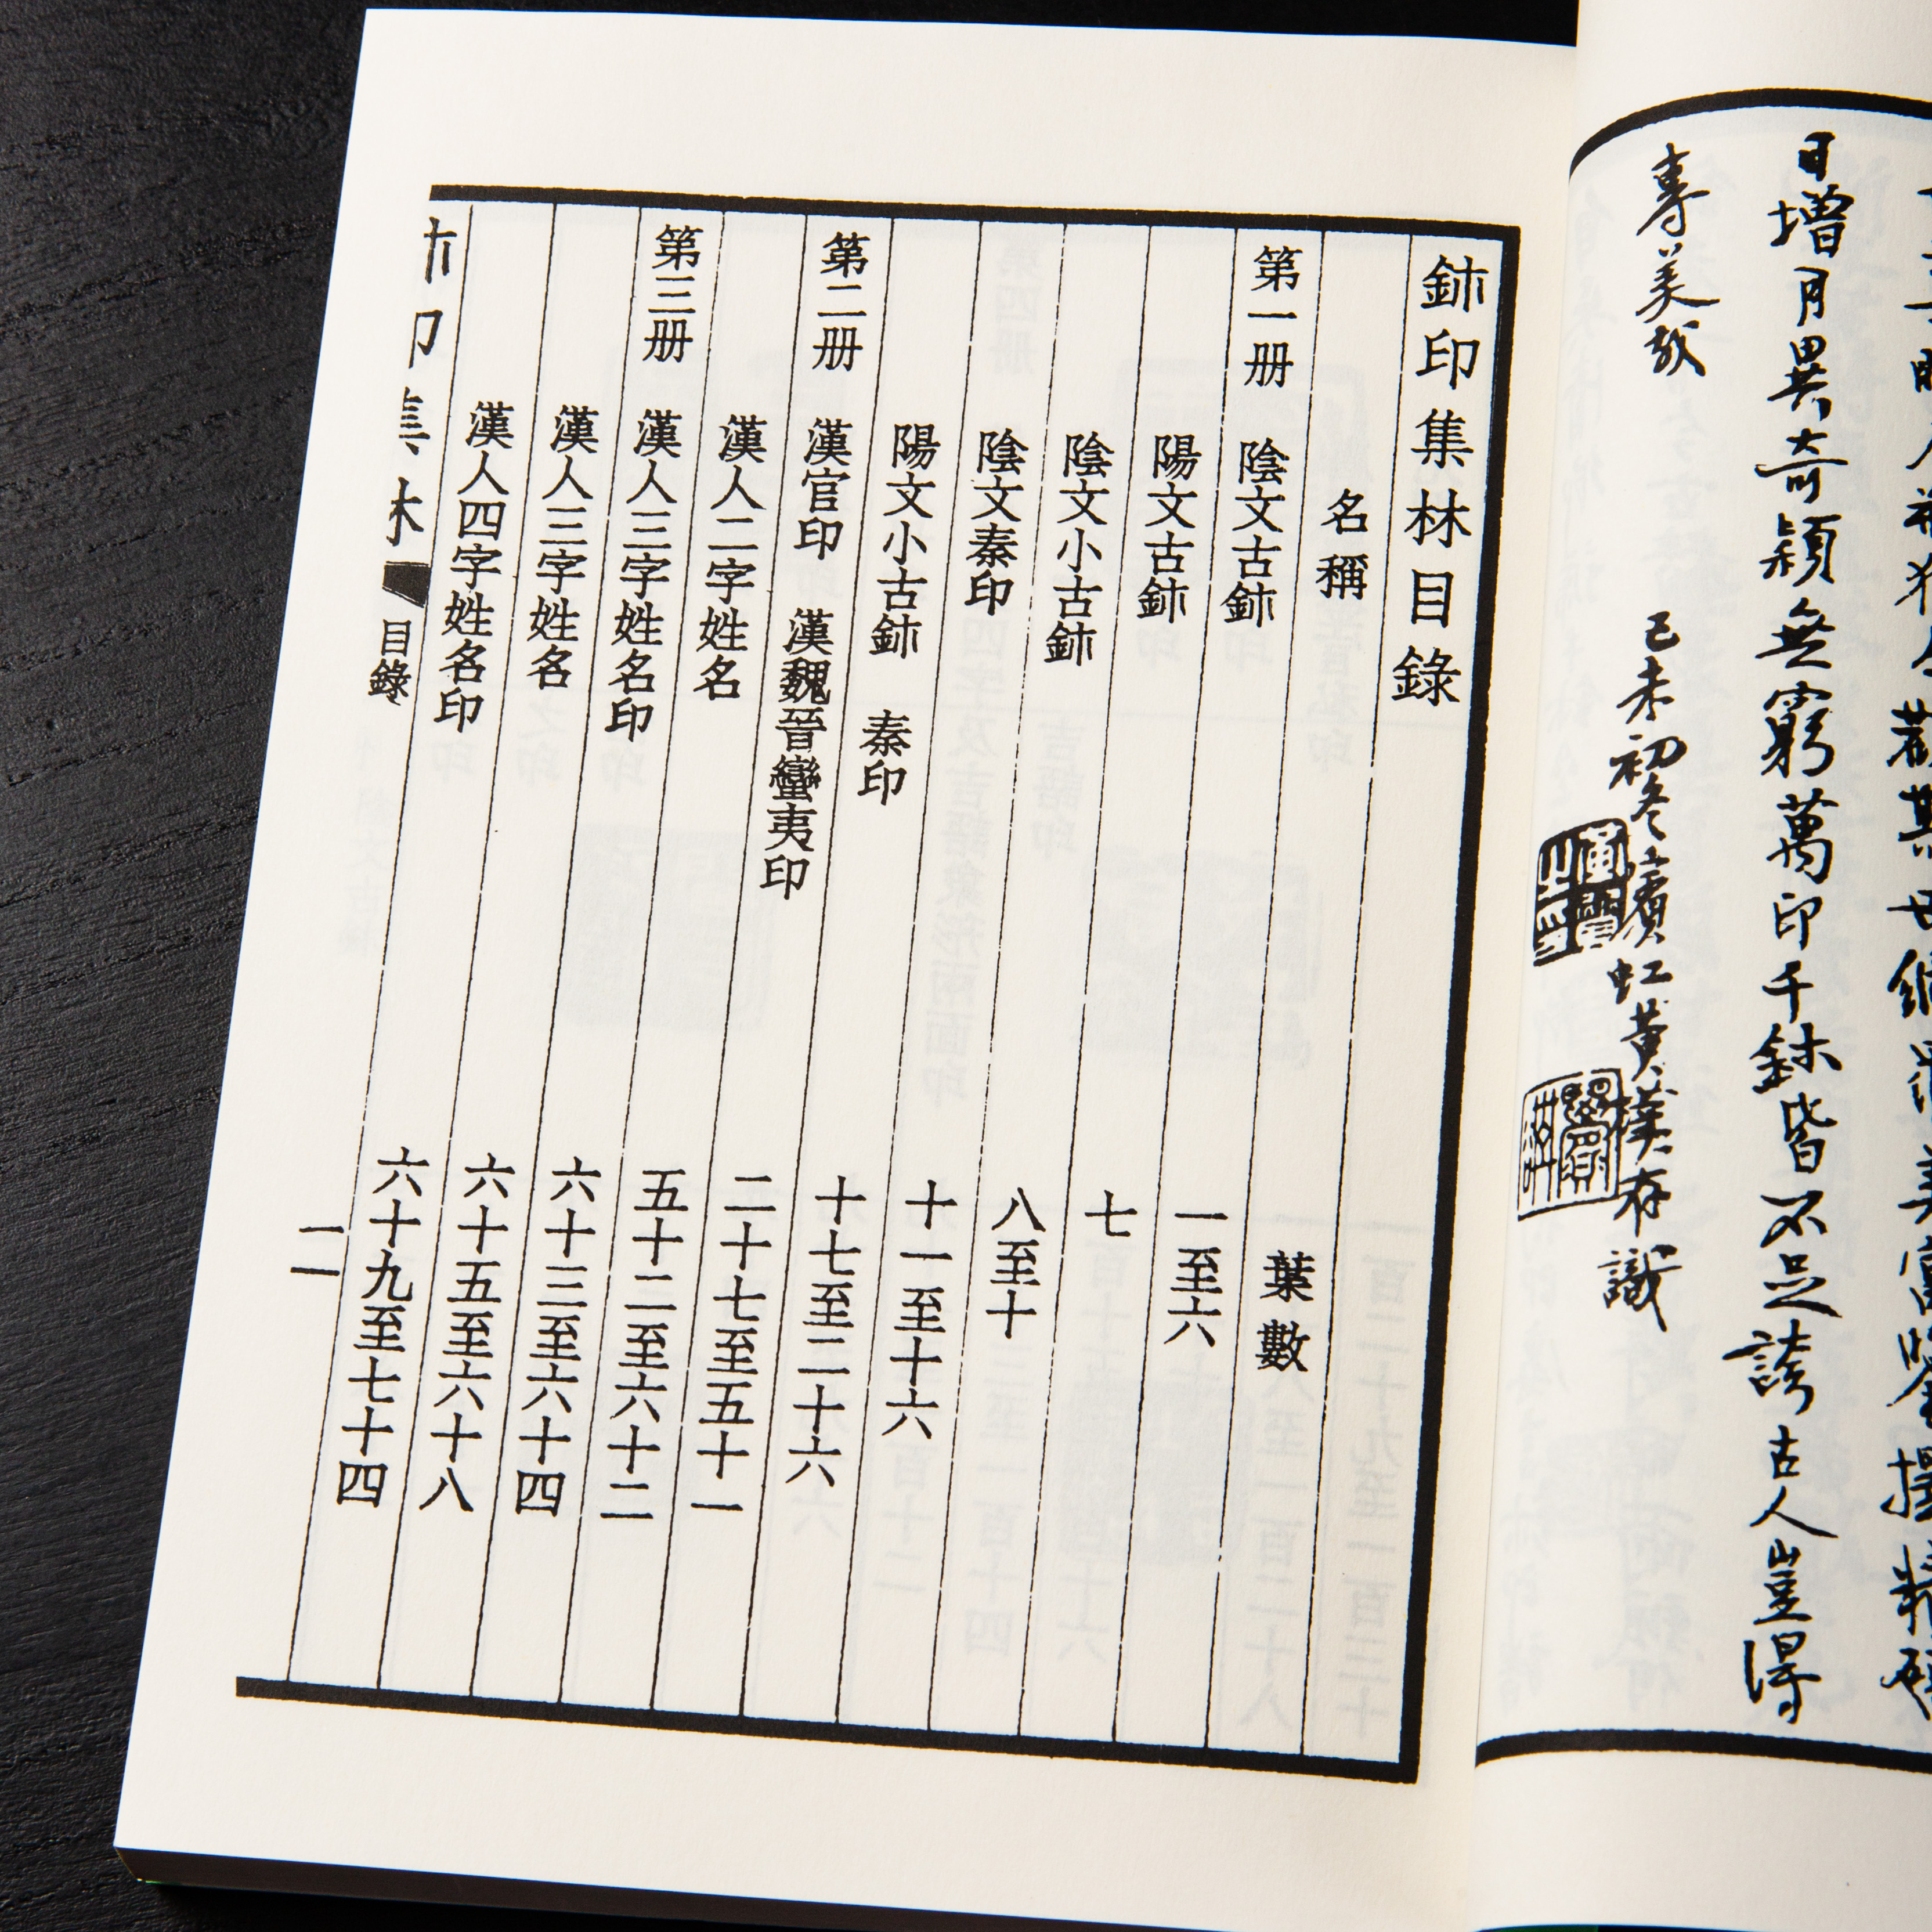 日增月異奇穎無窮萬印千鉥皆不足誇古人豈得
專美哉
己未初冬濱虹黃樸存識
鉥印集林目錄
名稱 葉數
第一册 陰文古鉥 一至六
陽文古鉥 七
陰文小古鉥 八至十
陰文秦印 十一至十六
陽文小古鉥 秦印 十七至二十六
第二册 漢官印 漢魏晉蠻夷印 二十七至五十一
漢人二字姓名 五十二至六十二
第三册 漢人三字姓名印 六十三至六十四
漢人三字姓名 六十五至六十八
漢人四字姓名印 六十九至七十四
印集林 目錄 二